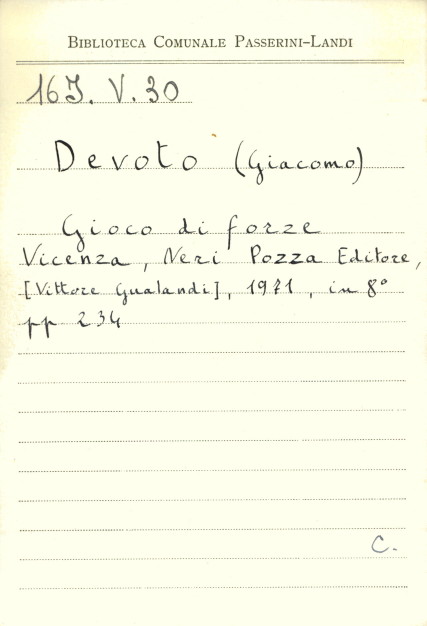 BIBLIOTECA COMUNALE PASSERINI-LANDI
16J. V. 30
Devoto (Giacomo)
Gioco di forze
Vicenza, Neri Pozza Editore,
[Vittore Gualandi], 1971, in 8°
pp 234
C.